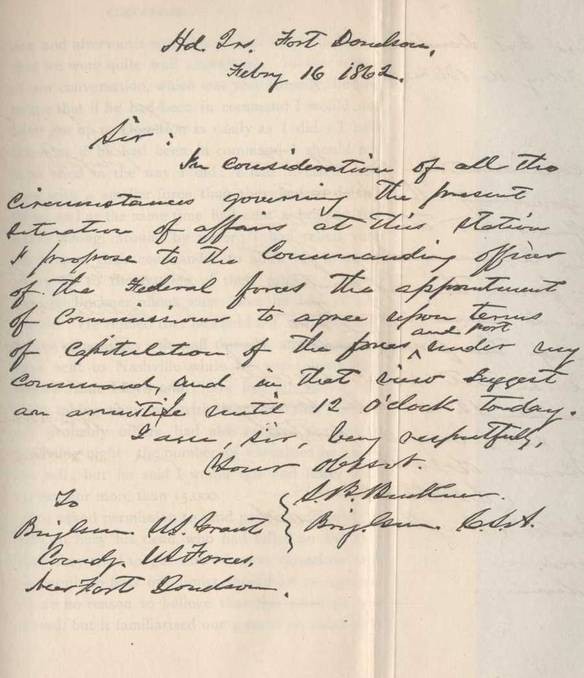 Hd. Qrs. Fort Donelson,
Feby 16 1862.
Sir:
In consideration of all the
circumstances governing the present
situation of affairs at this station
I propose to the Commanding officer
of the Federal forces the appointment
of Commissioners to agree upon terms
of capitulation of the forces and fort under my
command, and in that view suggest
an armistice until 12 o'clock today.
I am, sir, very respectfully,
Your obt svt.
S. B. Buckner.
Brig. Gen. C.S.A.
To
Brig Gen. U.S. Grant
Comdg. US Forces.
Near Fort Donelson.